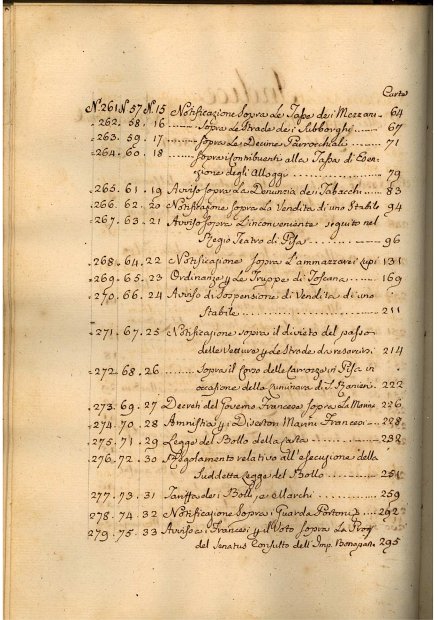 Carte
N. 261 N. 57 N. 15 Notificazione Sopra Le Tasse dei Mezzari 64
262. 58. 16 Sopra Le Strade dei Subborghi 67
263. 59. 17 Sopra Le Decime Parrocchiali 71
264. 60. 18 Sopra i Contribuenti alla Tassa di Esen-
zione degli Alloggi 79
265. 61. 19 Avviso Sopra La Denunzia dei Tabacchi 83
266. 62. 20 Notificazione Sopra La Vendita di uno Stabile 94
267. 63. 21 Avviso Sopra L'inconveniente seguito nel
Regio Teatro di Pisa 96
268. 64. 22 Notificazione Sopra L'ammazzare i Lupi 131
269. 65. 23 Ordinanze p. Le Truppe di Toscana 169
270. 66. 24 Avviso di Sospensione di Vendita di uno
Stabile 211
271. 67. 25 Notificazione sopra il divieto del passo
delle Vetture p. Le Strade da 214
272. 68. 26 Sopra il Corso delle Carrozze in Pisa in
occasione della Luminara di S. Ranieri 222
273. 69. 27 Decreti del Governo Francese Sopra La Marina 226
274. 70. 28 Amnistia p. i Disertori Marini Francesi 228
275. 71. 29 Legge del Bollo della Carta 232
276. 72. 30 Regolamento relativo all'esecuzione della
Suddetta Legge del Bollo 251
277. 73. 31 Tariffa dei Bolli, e Marchi 259
278. 74. 32 Notificazione Sopra i Guarda Portoni 292
279. 75. 33 Avviso a i Francesi p. il Voto Sopra La
del Senatus Consulto dell'Imp. 295